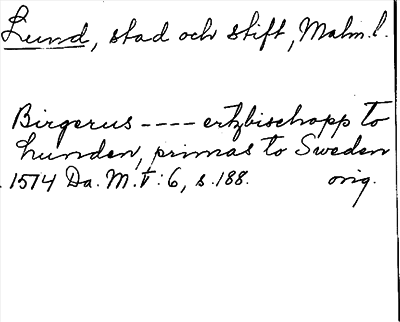 Lund, stad och stift, Malm.l.
Birgerus ---- ertzbischopp to
Lunden, primas to Sweden
1514 Da. M. V:6, s.188. orig.